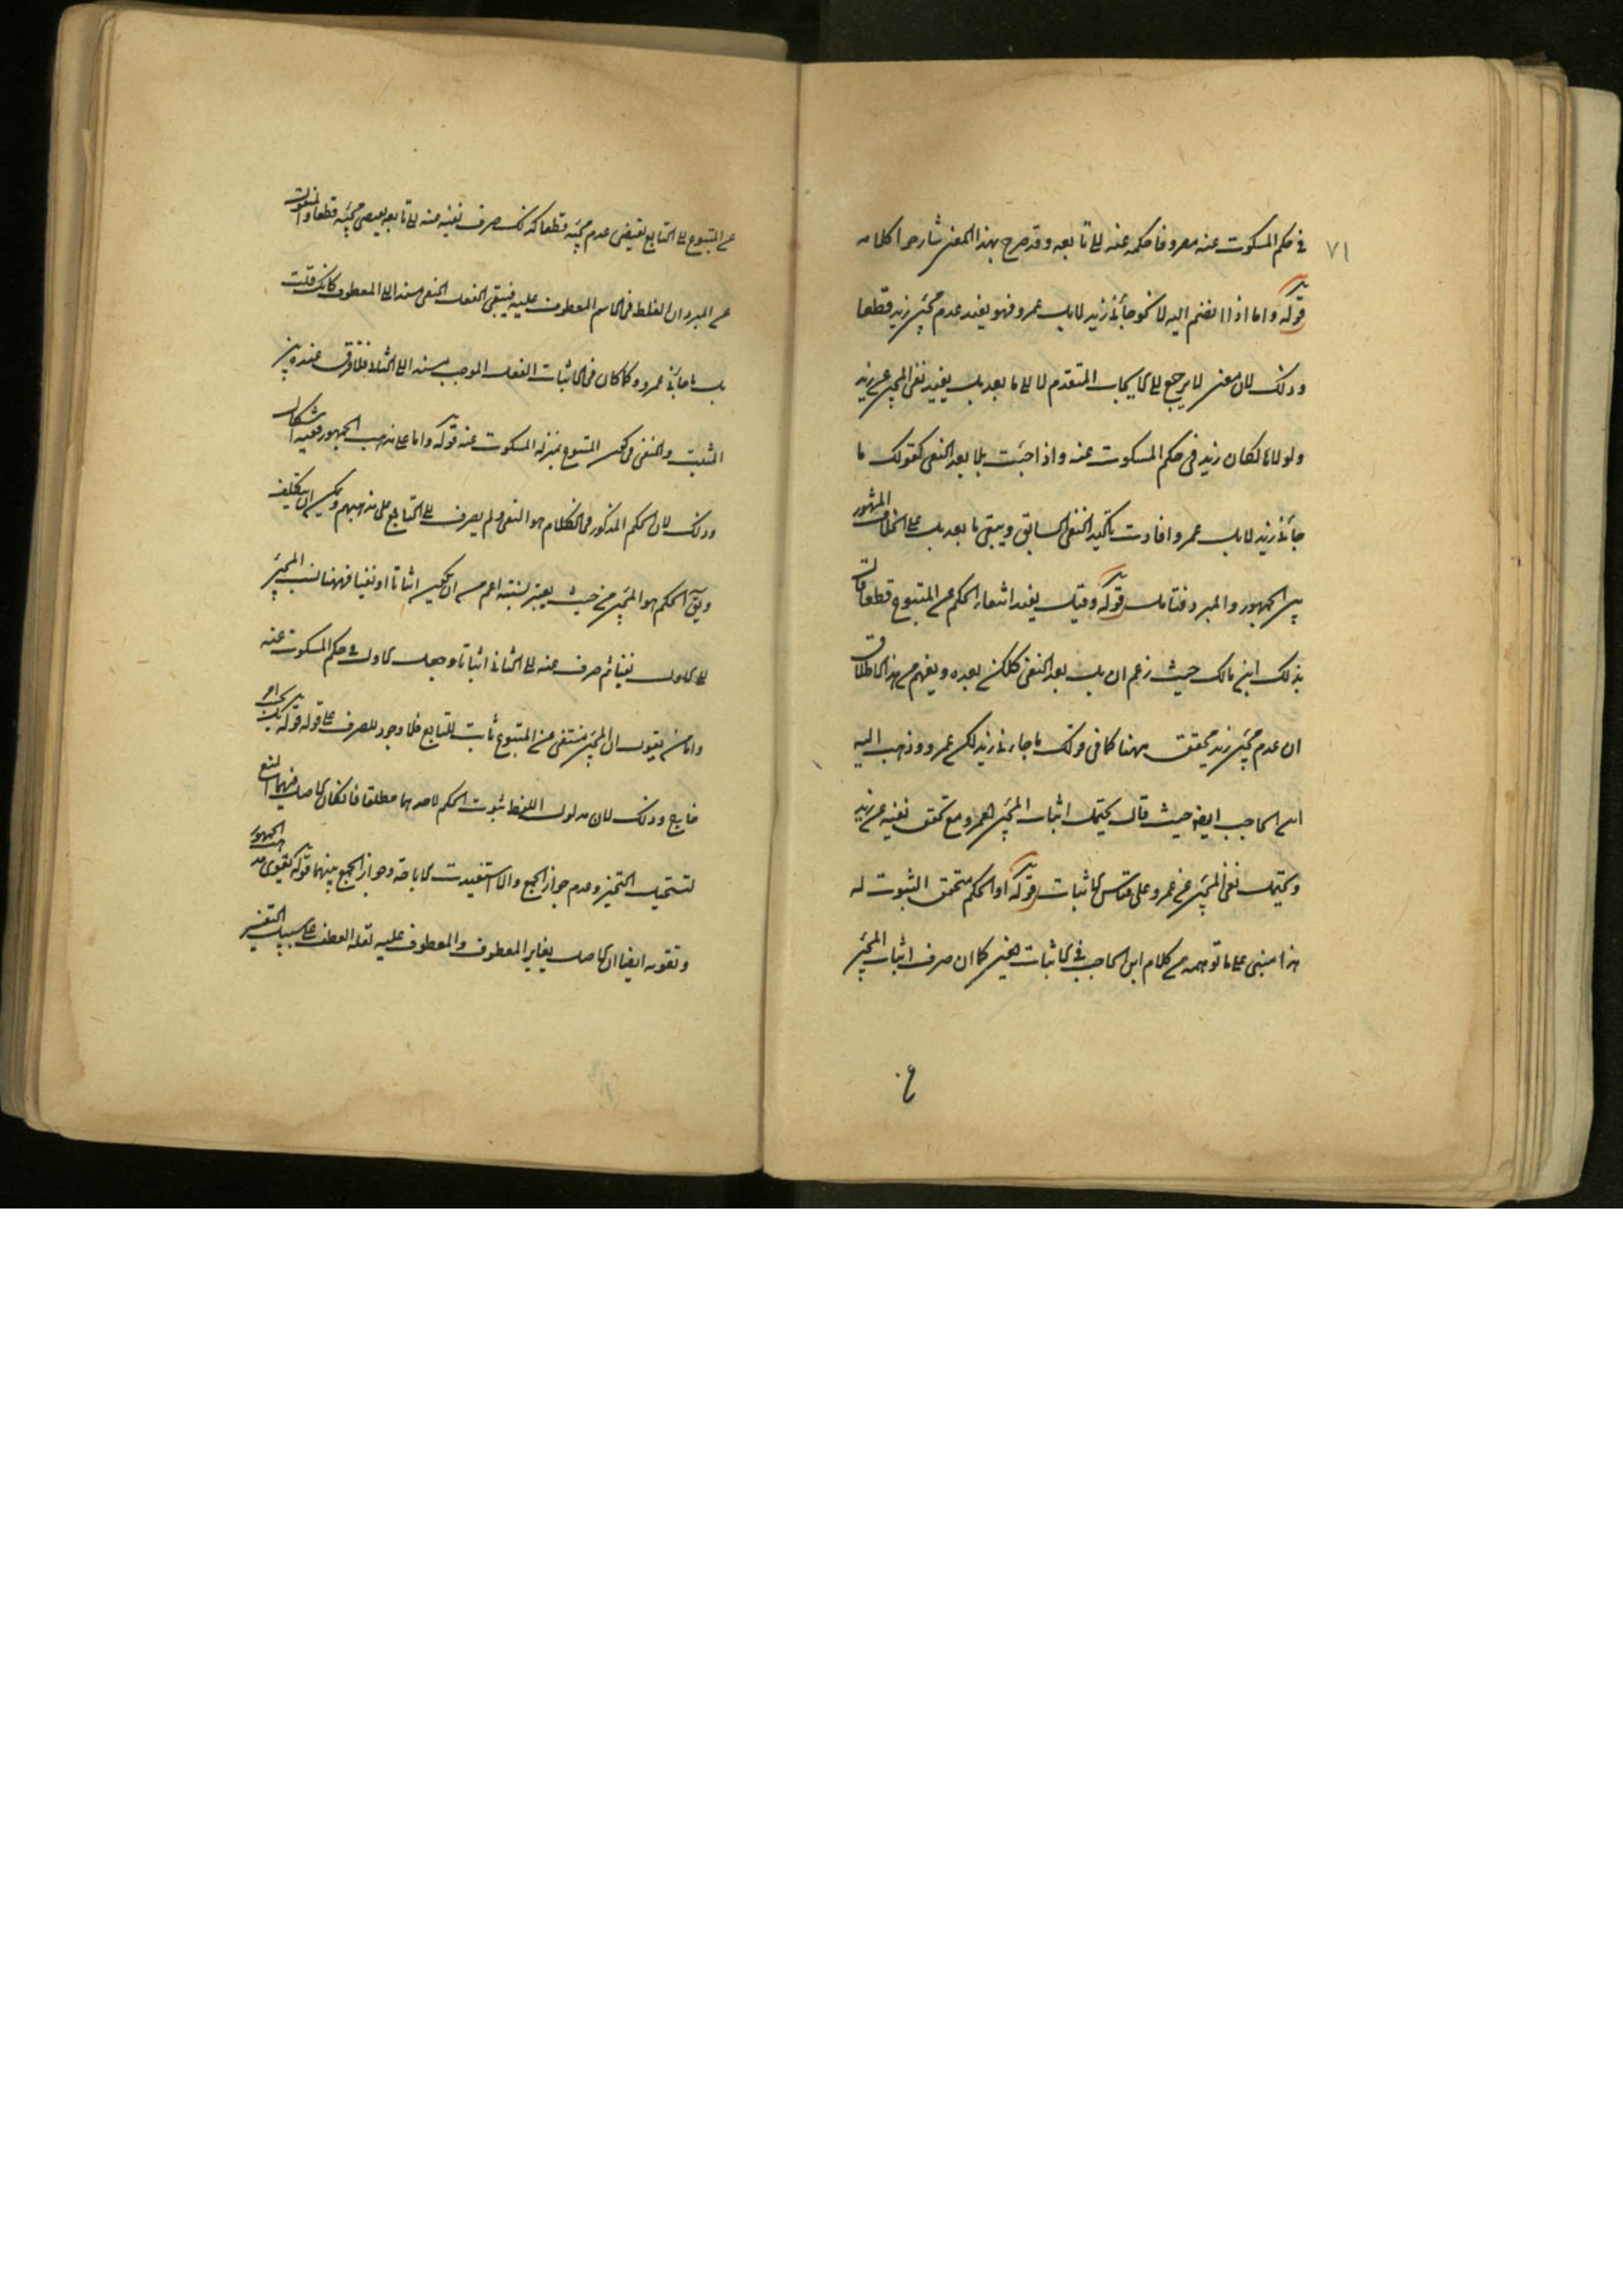 ٧١
في حكم المسكوت عنه مصروفا حكمه عنه الى تابعه وقد صرح بهذا المعنى شارحوا كلامه
قوله واما اذا انضم اليه لا نحو جائنى زيد لا بل عمرو فهو يفيد عدم مجئ زيد قطعا
وذلك لان معنى لا يرجع الى الايجاب المتقدم لا الى ما بعد بل يفيد نفى المجئ عن زيد
ولولا لا لكان زيد فى حكم المسكوت عنه واذا جئت بلا بعد النفى كقولك ما
جائنى زيد لا بل عمرو افادت تاكيد النفى السابق ويبقى ما بعد بل على الخلاف المشهور
بين الجمهور والمبرد فتامل قوله وقيل يفيد انتفاء الحكم عن المتبوع قطعا قال
بذلك ابن مالك حيث زعم ان بل بعد النفى كلكن بعده ويفهم من هذا الاطلاق
ان عدم مجئ زيد محقق ههنا كما فى قولك ما جاءنى زيد لكن عمرو وذهب اليه
ابن الحاجب ايضا حيث قال يحتمل اثبات المجئ لعمرو مع تحقق نفيه عن زيد
ويحتمل نفى المجئ عن عمرو على قياس الاثبات قوله او الحكم متحقق الثبوت له
هذا مبنى على ما توهمه من كلام ابن الحاجب فى الاثبات فحين كما ان صرف اثبات المجئ
عن المتبوع الى التابع يقتضى عدم مجيئه قطعا كذلك صرف نفيه عنه الى تابعه يقتضى مجيئه قطعا والمنقول
عن المبرد ان الغلط فى الاسم المعطوف عليه فيبقى الفعل المنفى مسندا الى المعطوف كانك قلت
بل ما جائنى عمرو وكما كان فى الاثبات الفعل الموجب مسندا الى الثانى فلا فرق عنده بين
المثبت والمنفى فى كون المتبوع بمنزلة المسكوت عنه قوله واما على مذهب الجمهور ففيه اشكال
وذلك لان الحكم المذكور فى الكلام هو النفى ولم يصرف الى التابع على مذهبهم ويمكن ان يتكلف
ويق الحكم هو المجئ من حيث يعتبر نسبته اعم من ان يكون اثباتا او نفيا فههنا نسب المجئ
الى الاول نفيا ثم صرف عنه الى الثانى اثباتا وجعل الاول فى حكم المسكوت عنه
واما من يقول ان المجئ منتفى عن المتبوع ثابت للتابع فلا وجود للصرف على قوله قوله
وذلك لان مدلول اللفظ ثبوت الحكم لاحدهما مطلقا فان كان الاصل فيهما المنع
التخيير وعدم جواز الجمع والا استفيدت الاباحة وجواز الجمع بينهما قوله
ايضا ان الاصل يغاير المعطوف والمعطوف عليه العطف على سبيل التفسير